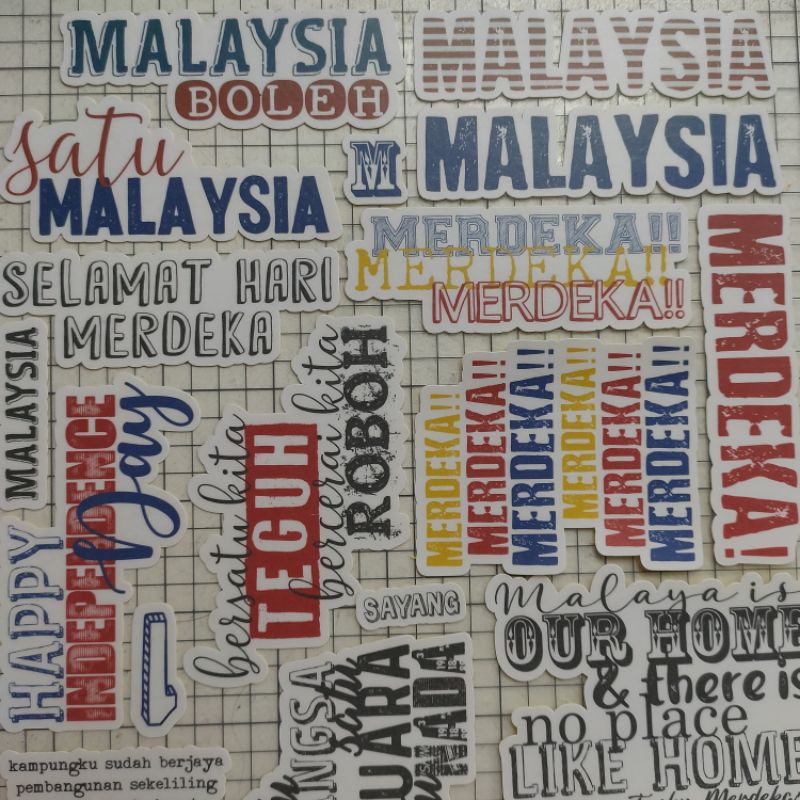 MALAYSIA
BOLEH
MALAYSIA
satu
MALAYSIA
M
MALAYSIA
MERDEKA!!
MERDEKA!!
MERDEKA!!
MERDEKA!
SELAMAT HARI
MERDEKA
MALAYSIA
HAPPY
INDEPENDENCE
Day
bersatu kita
TEGUH
bercerai kita
ROBOH
MERDEKA!!
MERDEKA!!
MERDEKA!!
MERDEKA!!
MERDEKA!!
MERDEKA!!
SAYANG
Malaya is
OUR HOME
& there is
no place
LIKE HOME
kampungku sudah berjaya
pembangunan sekeliling